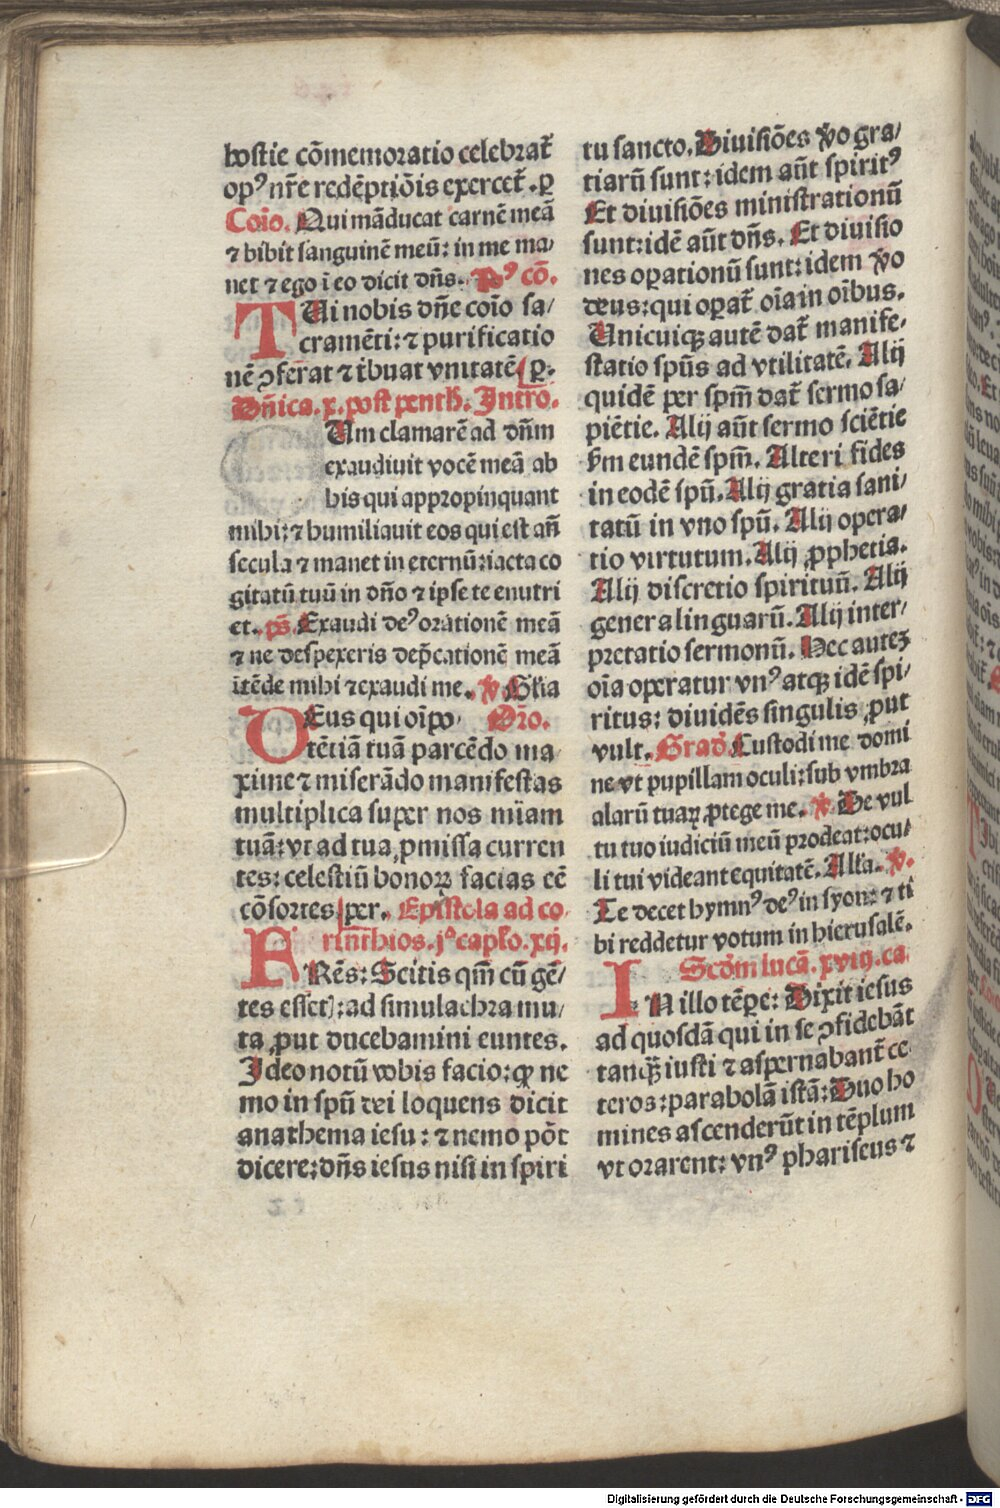 hostie cōmemoratio celebrat᷑
opꝰ nr̄e redēptiōis exercet᷑. ꝑ
Coīo. Qui māducat carnē meā
⁊ bibit sanguinē meū: in me ma/
net ⁊ ego ī eo dicit dn̄s. Poꝰ cō.
TUi nobis dn̄e coīo sa/
cramēti: ⁊ purificatio
nē ꝯferat ⁊ tͥbuat vnitatē ꝑ.
Dn̄ica. x. post penth. Intro.
Um clamarē ad dn̄m
exaudiuit vocē meā ab
his qui appropinquant
mihi: ⁊ humiliauit eos qui est an̄
secula ⁊ manet in eternū: iacta co
gitatū tuū in dn̄o ⁊ ipse te enutri
et. ps̄. Exaudi deꝰ orationē meā
⁊ ne despexeris dep̄cationē meā
ītēde mihi ⁊ exaudi me. ℣ Gl̄ia
DEus qui oīpo Or̄o.
tētiā tuā parcēdo ma
xime ⁊ miserādo manifestas
multiplica super nos mīam
tuā: vt ad tua ꝓmissa curren
tes: celestiū bonoꝝ facias eē
cōsortes. per. Epistola ad co
rinthios. jᵃ capl̄o. xij.
FRēs: Scitis qm̄ cū gē/
tes essetꝭ: ad simulachra mu/
ta ꝓut ducebamini euntes.
Ideo notū vobis facio: ꝙ ne
mo in spū dei loquens dicit
anathema iesu: ⁊ nemo pōt
dicere: dn̄s iesus nisi in spiri
tu sancto. Diuisiōes v̊o gra/
tiarū sunt: idem aūt spiritꝰ
Et diuisiōes ministrationū
sunt: idē aūt dn̄s. Et diuisio
nes oꝑationū sunt: idem v̊o
deus: qui oꝑat᷑ oīa in oībus.
Unicuiqꝫ autē dat᷑ manife/
statio spūs ad vtilitatē. Alij
quidē per spm̄ dat᷑ sermo sa/
piētie. Alij aūt sermo sciētie
ẜm eundē spm̄. Alteri fides
in eodē spū. Alij gratia sani/
tatū in vno spū. Alij opera/
tio virtutum. Alij ꝓphetia.
Alij discretio spirituū. Alij
genera linguarū. Alij inter/
pretatio sermonū. Hec auteꝫ
oīa operatur vnꝰ atqꝫ idē spi/
ritus: diuidēs singulis ꝓut
vult. Grad̄. Custodi me domi
ne vt pupillam oculi: sub vmbra
alarū tuaꝝ ꝓtege me. ℣ De vul
tu tuo iudiciū meū prodeat: ocu/
li tui videant equitatē. All̄a. ℣.
Te decet hymnꝰ deꝰ in syon: ⁊ ti
bi reddetur votum in hierusalē.
Scd̄m lucā. xviij. ca.
IN illo tēpe: Dixit iesus
ad quosdā qui in se ꝯfidebāt
tanqꝫ iusti ⁊ aspernabant᷑ ce
teros: parabolā istā: Duo ho
mines ascenderūt in tēplum
vt orarent: vnꝰ phariseus ⁊
Digitalisierung gefördert durch die Deutsche Forschungsgemeinschaft - DFG